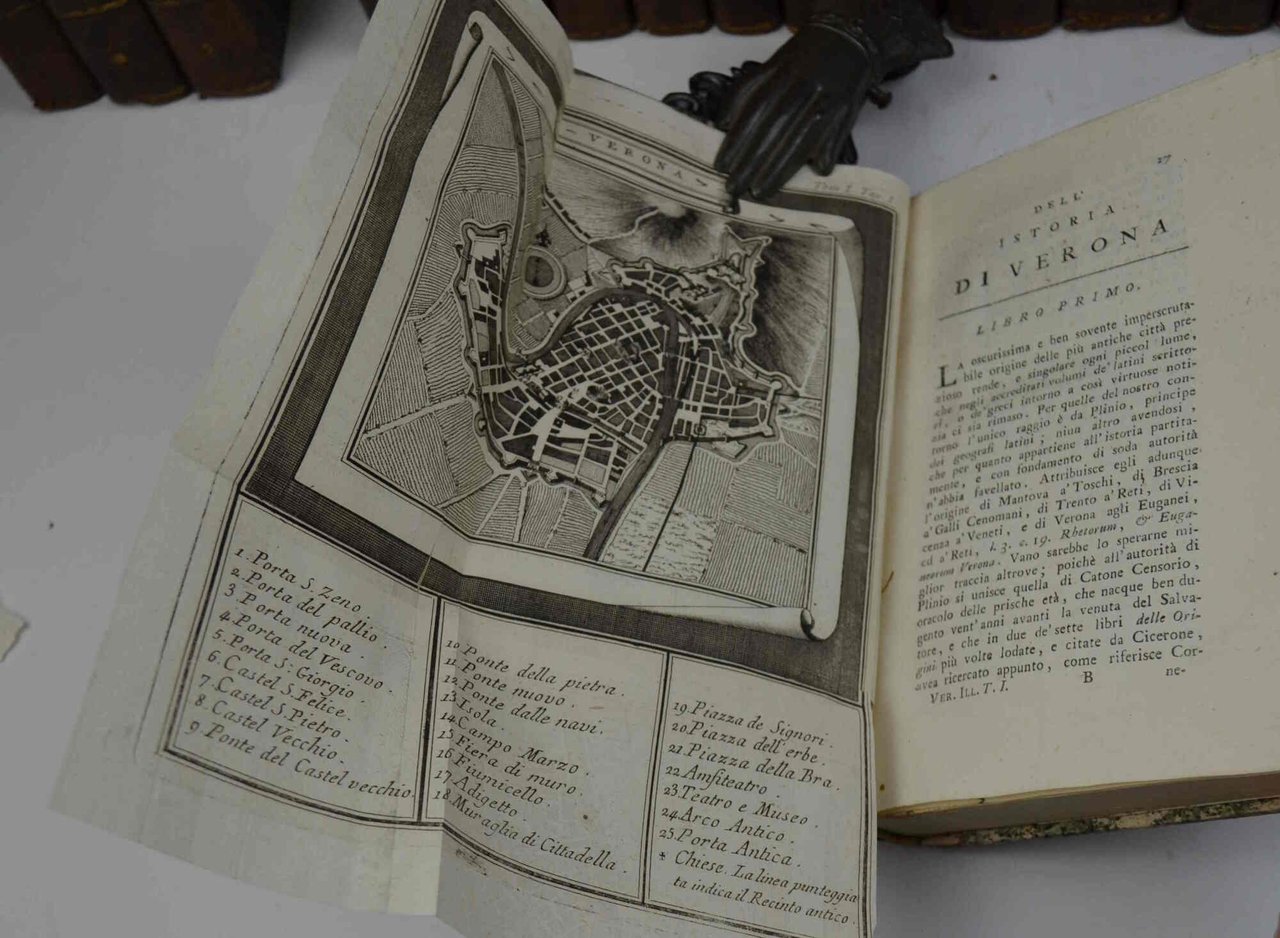 VERONA
Tom. I. Tav. I
1. Porta S. Zeno.
2. Porta del pallio.
3. Porta nuova.
4. Porta del Vescovo.
5. Porta S. Giorgio.
6. Castel S. Felice.
7. Castel S. Pietro.
8. Castel Vecchio.
9. Ponte del Castel vecchio.
10. Ponte della pietra.
11. Ponte nuovo.
12. Ponte dalle navi.
13. Isola.
14. Campo Marzo.
15. Fiera di muro.
16. Fiumicello.
17. Adigetto.
18. Muraglia di Cittadella.
19. Piazza de Signori.
20. Piazza dell'erbe.
21. Piazza della Bra.
22. Amfiteatro.
23. Teatro e Museo.
24. Arco Antico.
25. Porta Antica.
* Chiese. La linea punteggia
ta indica il Recinto antico.
27
DELL'
ISTORIA
DI VERONA
LIBRO PRIMO.
LA oscurissima e ben sovente imperscruta-
bile origine delle più antiche città pre-
zioso rende, e singolare ogni piccol lume,
che negli accreditati volumi de' latini scritto-
ri, o de' greci intorno a così virtuose noti-
zia ci sia rimaso. Per quelle del nostro con-
torno l'unico raggio è da Plinio, principe
dei geografi latini; niun altro avendosi,
che per quanto appartiene all'istoria partita-
mente, e con fondamento di soda autorità
n'abbia favellato. Attribuisce egli adunque
l'origine di Mantova a' Toschi, di Brescia
a' Galli Cenomani, di Trento a' Reti, di Vi-
cenza a' Veneti, e di Verona agli Euganei,
ed a' Reti, l. 3. c. 19. Rhetorum, & Euga-
neorum Verona. Vano sarebbe lo sperarne mi-
glior traccia altrove; poichè all'autorità di
Plinio si unisce quella di Catone Censorio,
oracolo delle prische età, che nacque ben du-
gento vent'anni avanti la venuta del Salva-
tore, e che in due de' sette libri delle Ori-
gini più volte lodate, e citate da Cicerone,
avea ricercato appunto, come riferisce Cor-
VER. ILL. T. I. B ne-